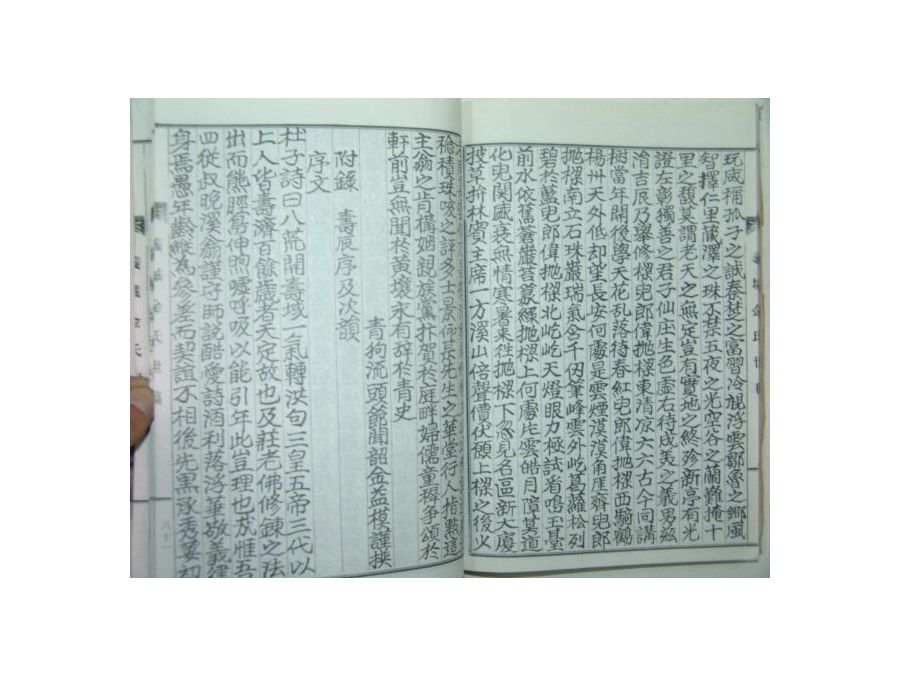 玩咸稱孤子之誠春梦之富習冷覩浮雲鄒魯之鄕風
智擇仁里藏澤之珠不禁五夜之光空谷之蘭難掩十
里之馥莫謂老天之無定豈有實地之終殄新亭有光
證左彰獨善之君子仙庄生色虛右待成美之義男玆
涓吉辰乃擧修樑兒郎偉抛樑東清凉六六古今同講
樹當年開後學天花乱落待春紅兒郎偉抛樑西騎鶴
楊州天外低却望長安何處是雲煙漠漠角崖齊兒郎
抛樑南立石珠巖瑞氣含千仞筆峰雲外屹葛蘿松列
碧於藍兒郎偉抛樑北屹屹天燈眼力極試看鳴玉臺
前水依舊蒼巖苔篆經抛樑上何處片雲皓月障莫道
化兒関感衰無情寒暑来徃抛樑下忽見名區新大廈
投草拚林賓主席一方溪山倍聲價伏願上樑之後火
穡積珠唆之評多士景仰長先生之華堂行人指點這
主翁之肯構姻親族黨抃賀於庭畔婦儒童穉争頌於
軒前豈無聞於黃壤永有辞於青史
青狗流頭節聞韶金益模謹挾
附錄 壽辰序及次韻
序文
杜子詩曰八荒開壽域一氣轉洪匀三皇五帝三代以
上人皆壽濟百餘歲者天定故也及莊老佛修鍊之法
出而熊脛鳥伸呴噓呼吸以能引年此豈理也㢤惟吾
四從叔晩溪翁謹守師説酷愛詩酒利落浮華敬義
身焉愚年齡縱為參差而契誼不相後先累承
金氏世稿
八十